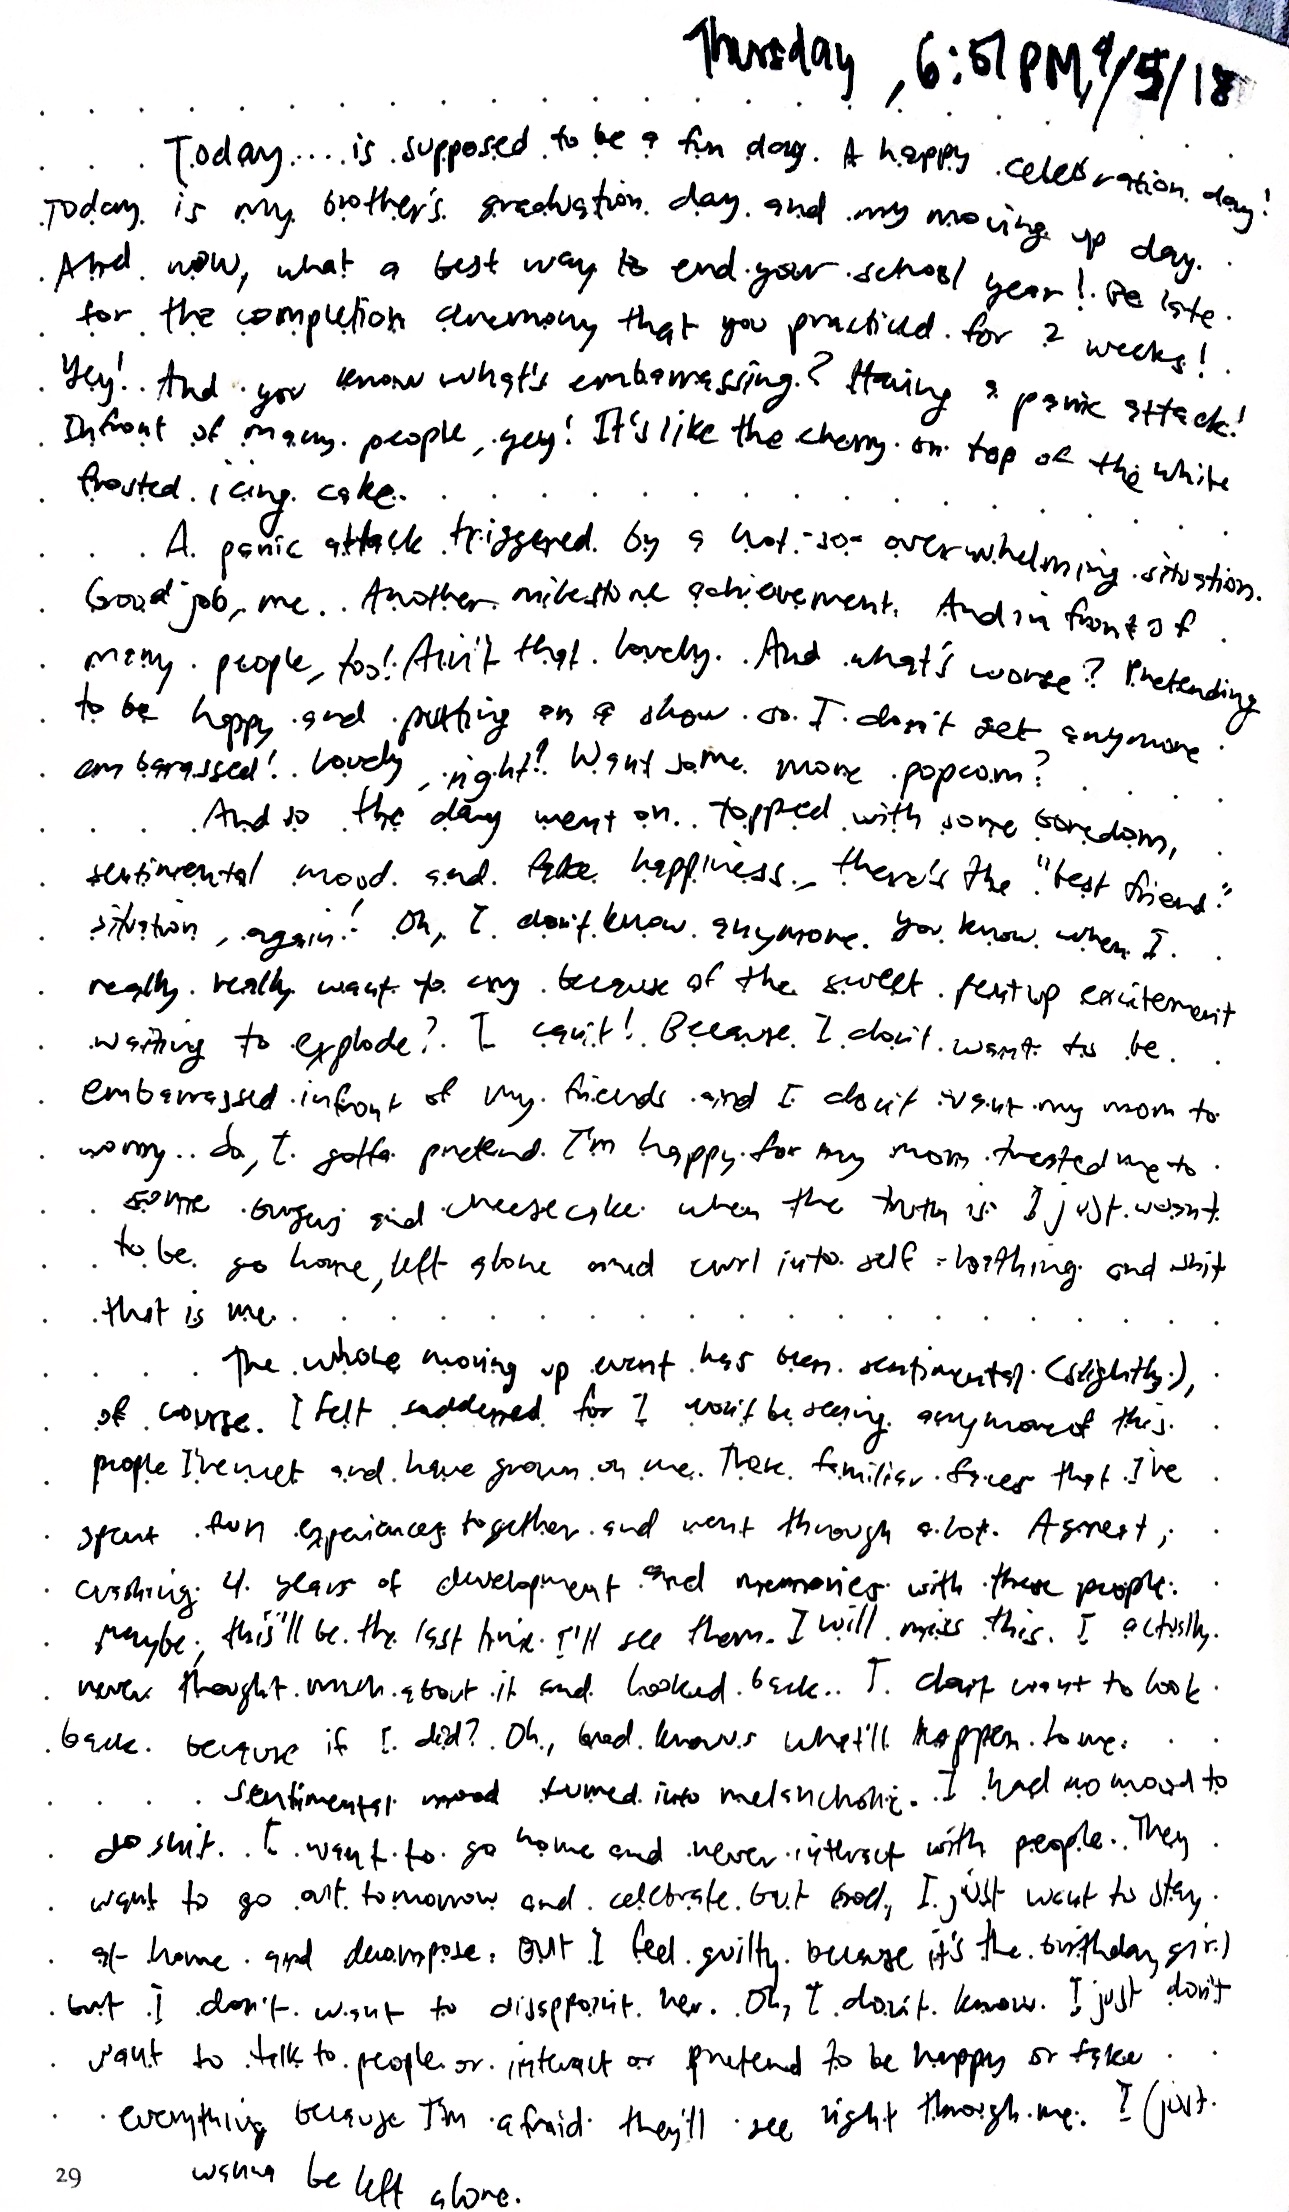 Thursday, 6:51 PM, 4/5/18
Today.... is supposed to be a fun day. A happy celebration day!
Today is my brother's graduation day and my moving up day.
And now, what a best way to end your school year! Be late
for the completion ceremony that you practiced for 2 weeks!
Yey! And you know what's embarrassing? Having a panic attack!
Infront of many people, yey! It's like the cherry on top of the white
frosted icing cake.
A panic attack triggered by a not-so-overwhelming situation.
Good job, me. Another milestone achievement. And in front of
many people, too! Ain't that lovely. And what's worse? Pretending
to be happy and putting on a show so I don't get anymore
embarassed! Lovely, right? Want some more popcorn?
And so the day went on. Topped with some boredom,
sentimental mood and fake happiness, there's the "best friend"
situation, again! Oh, I don't know anymore. You know when I
really really want to cry because of the sweet pent up excitement
waiting to explode? I can't! Because I don't want to be
embarrassed infront of my friends and I don't want my mom to
worry. So, I gotta pretend I'm happy for my mom treated me to
some burgers and cheesecake when the truth is I just want
to be go home, left alone and curl into self-loathing and shit
that is me.
The whole moving up event has been sentimental (slightly),
of course. I felt saddened for I won't be seeing anymore of this
people I've met and have grown on me. These familiar faces that I've
spent fun experiences together and went through a lot. A great,
crushing 4 years of development and memories with these people.
Maybe, this'll be the last time I'll see them. I will miss this. I actually
never thought much about it and looked back. I don't want to look
back because if I did? Oh, God knows what'll happen to me.
Sentimental mood turned into melancholic. I had no mood to
do shit. I want to go home and never interact with people. They
want to go out tomorrow and celebrate but God, I just want to stay
at home and decompose. But I feel guilty because it's the birthday girl
but I don't want to disappoint her. Oh, I don't know. I just don't
want to talk to people or interact or pretend to be happy or fake
everything because I'm afraid they'll see right through me. I just
wanna be left alone.
29